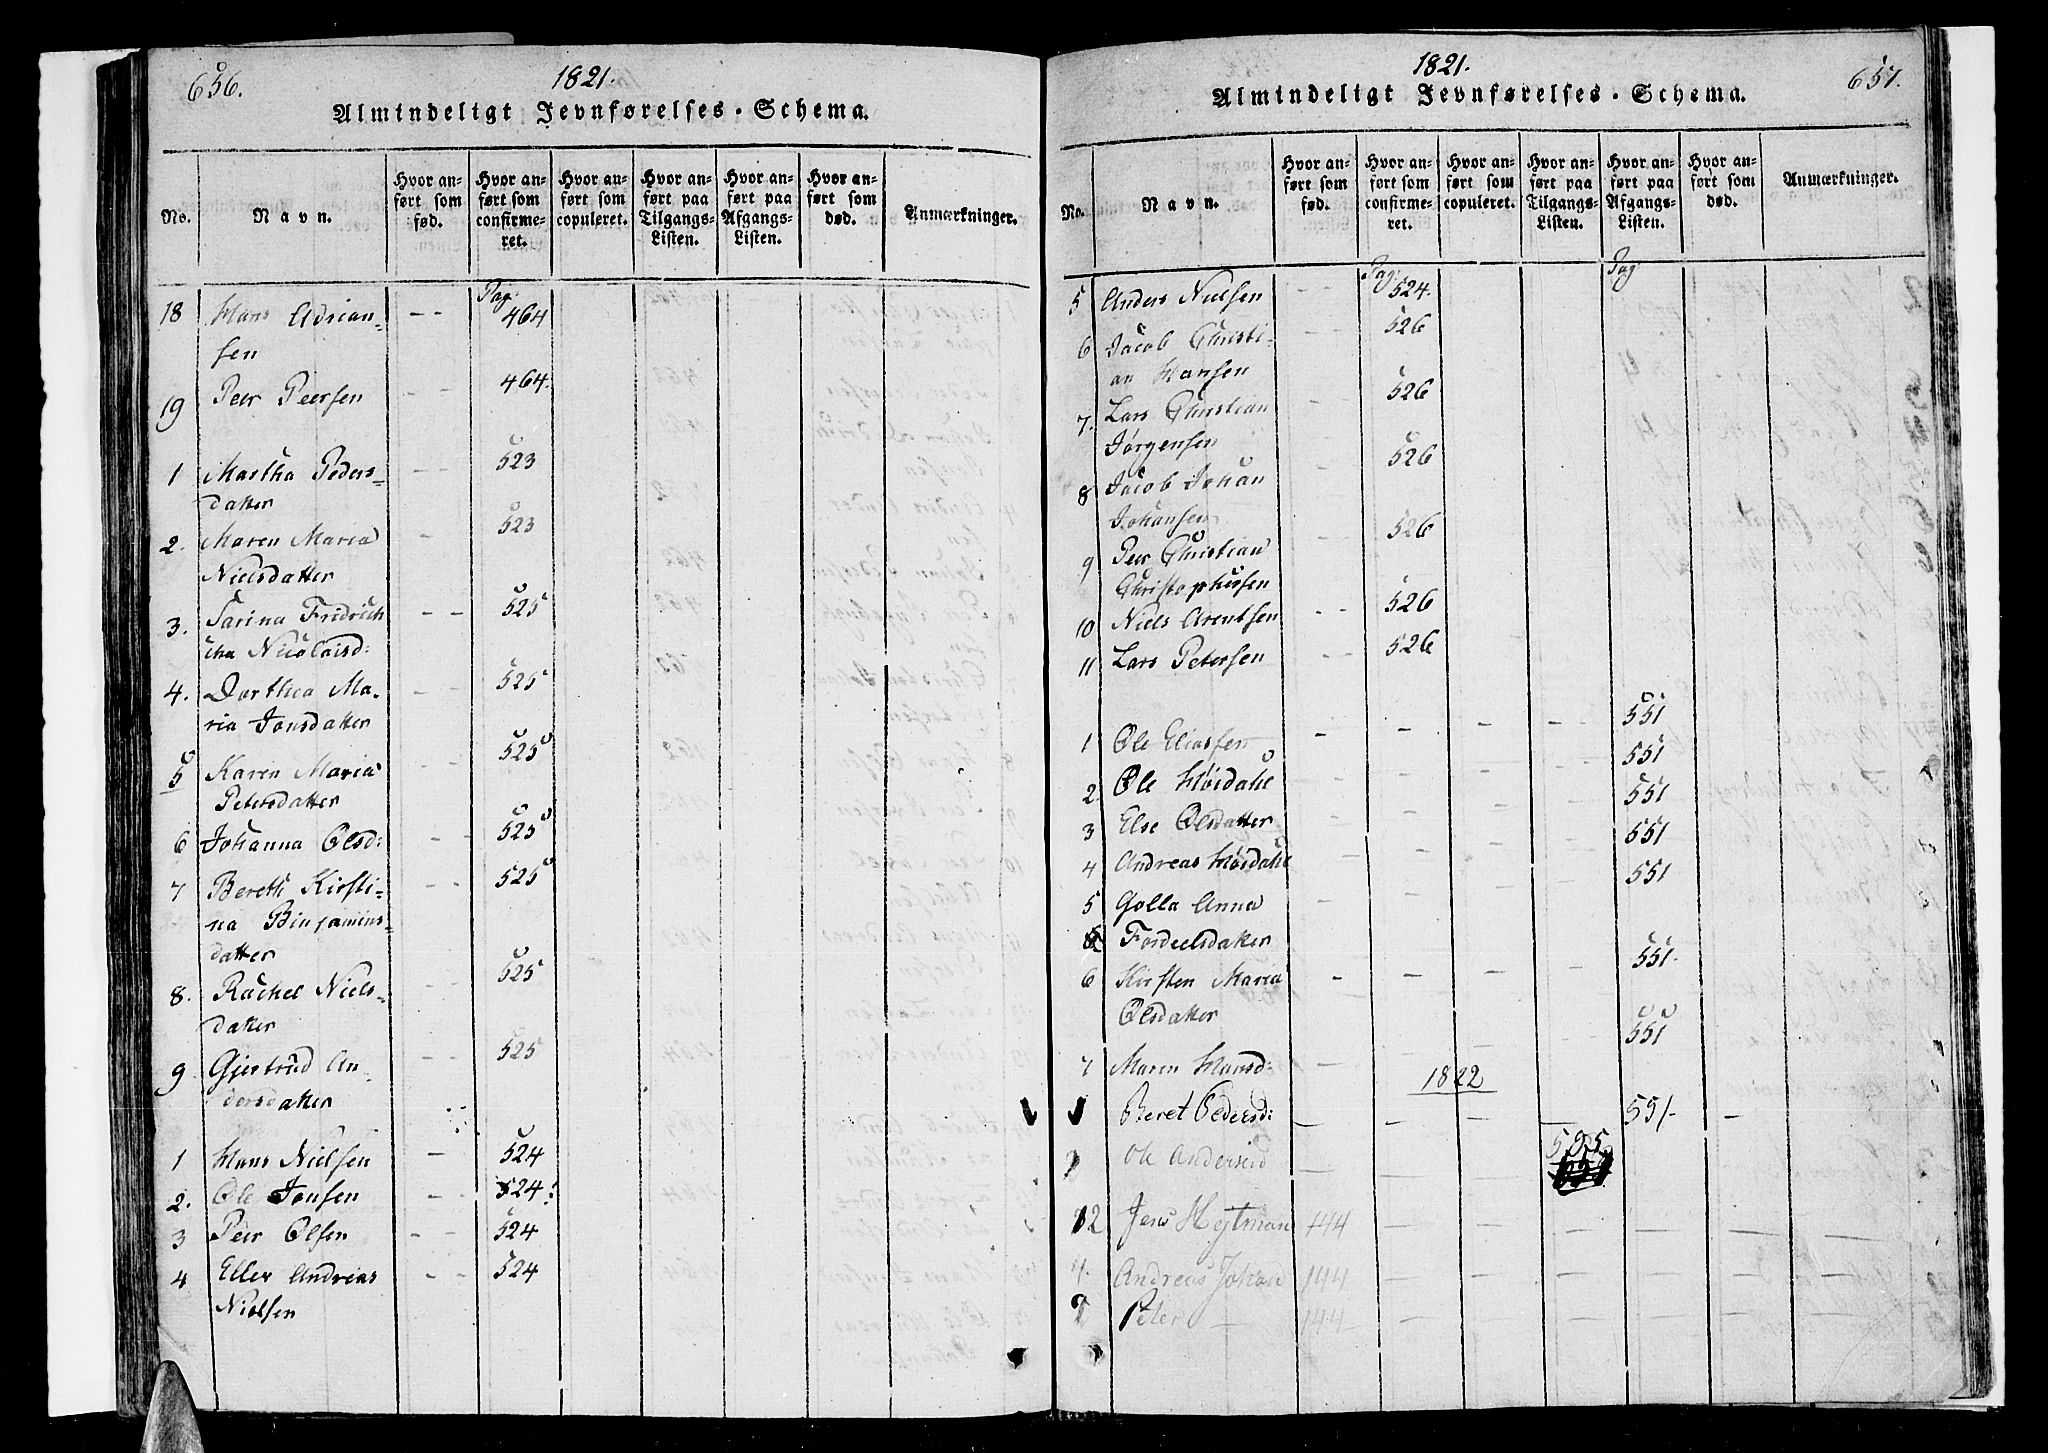 656.
1821.
Almindeligt Jevnførelses-Schema.
No.
Navn.
Hvor an-
ført som
fød.
Hvor an-
ført som
confirme-
ret.
Hvor an-
ført som
copuleret.
Hvor an-
ført paa
Tilgangs-
Listen.
Hvor an-
ført paa
Afgangs-
Listen.
Hvor an-
ført som
død.
Anmærkninger.
Pag:
18 Hans Adrian- -- 464
sen
19 Peer Peersen - 464.
1 Martha Peders- -- 523
datter
2. Maren Maria - 523
Nielsdatter
3. Sarina Fridrich -- 525
cha Nicolaisd:
4. Dorthea Ma- -- 525
ria Jonsdatter
5 Karen Maria -- 525
Petersdatter
6 Johanna Olsd: -- 525
7 Bereth Kirsti- -- 525
na Binjamins-
datter
8. Rachel Niels- -- 525
datter
9 Gjertrud An- -- 525
dersdatter
1 Hans Nielsen -- 524
2. Ole Jonsen -- 524:
3 Peer Olsen -- 524
4 Eller Andreas -- 524
Nielsen
1821.
657.
Almindeligt Jevnførelses-Schema.
No.
Navn.
Hvor an-
ført som
fød.
Hvor an-
ført som
confirme-
ret.
Hvor an-
ført som
copuleret.
Hvor an-
ført paa
Tilgangs-
Listen.
Hvor an-
ført paa
Afgangs-
Listen.
Hvor an-
ført som
død.
Anmærkninger.
Pag: Pag:
5 Anders Nielsen -- 524.
6 Jacob Christi- -- 526
an Hansen
7. Lars Christian -- 526
Jørgensen
8 Jacob Johan - 526
Johansen
9 Peer Christian - 526
Christophersen
10 Niels Arentsen -- 526
11 Lars Petersen -- 526
1 Ole Eliassen - - - -- 551
2. Ole Høsdahl 551
3 Else Olsdatter 551
4 Andreas Høsdahl 551
5 Golla Anna 551
Fordeelsdatter
6 Kirsten Maria - - - - 551.
Olsdatter
7 Maren Hansd: - - - - 551
1822
1 Beret Pedersd: - - - - 591- -
Ole Andersen - - 595
12 Jens Hejtman 144 - - - - -
4. Andreas Johan 144 - - - - - -
Peter - 144 - - - - - -